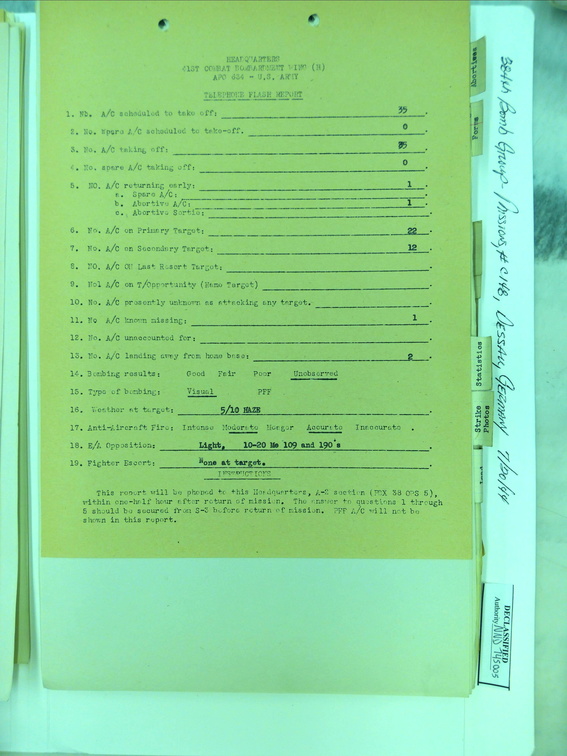 HEADQUARTERS
41ST COMBAT BOMBARDMENT WING (H)
APO 634 - U.S. ARMY
TELEPHONE FLASH REPORT
1. No. A/C scheduled to take off: 35
2. No. Spare A/C scheduled to take-off. 0
3. No. A/C taking off: 35
4. No. spare A/C taking off: 0
5. NO. A/C returning early: 1
a. Spare A/C:
b. Abortive A/C: 1
c. Abortive Sortie:
6. No. A/C on Primary Target: 22
7. No. A/C on Secondary Target: 12
8. NO. A/C ON Last Resort Target:
9. No1 A/C on T/Opportunity (Name Target)
10. No. A/C presently unknown as attacking any target.
11. No A/C known missing: 1
12. No. A/C unaccounted for:
13. No. A/C landing away from home base: 2
14. Bombing results: Good Fair Poor Unobserved
15. Type of bombing: Visual PFF
16. Weather at target: 5/10 HAZE
17. Anti-Aircraft Fire: Intense Moderate Meager Accurate Inaccurate .
18. E/A Opposition: Light, 10-20 Me 109 and 190's
19. Fighter Escort: None at target.
INSTRUCTIONS
This report will be phoned to this Headquarters, A-2 section (FOX 38 OPS 5),
within one-half hour after return of mission. The answer to questions 1 through
5 should be secured from S-3 before return of mission. PFF A/C will not be
shown in this report.
Abortives
Forms
Statistics
Strike
Photos
384th Bomb Group - Missions, # C148, DESSAU, GERMANY 7/20/44
DECLASSIFIED
Authority NND 745005